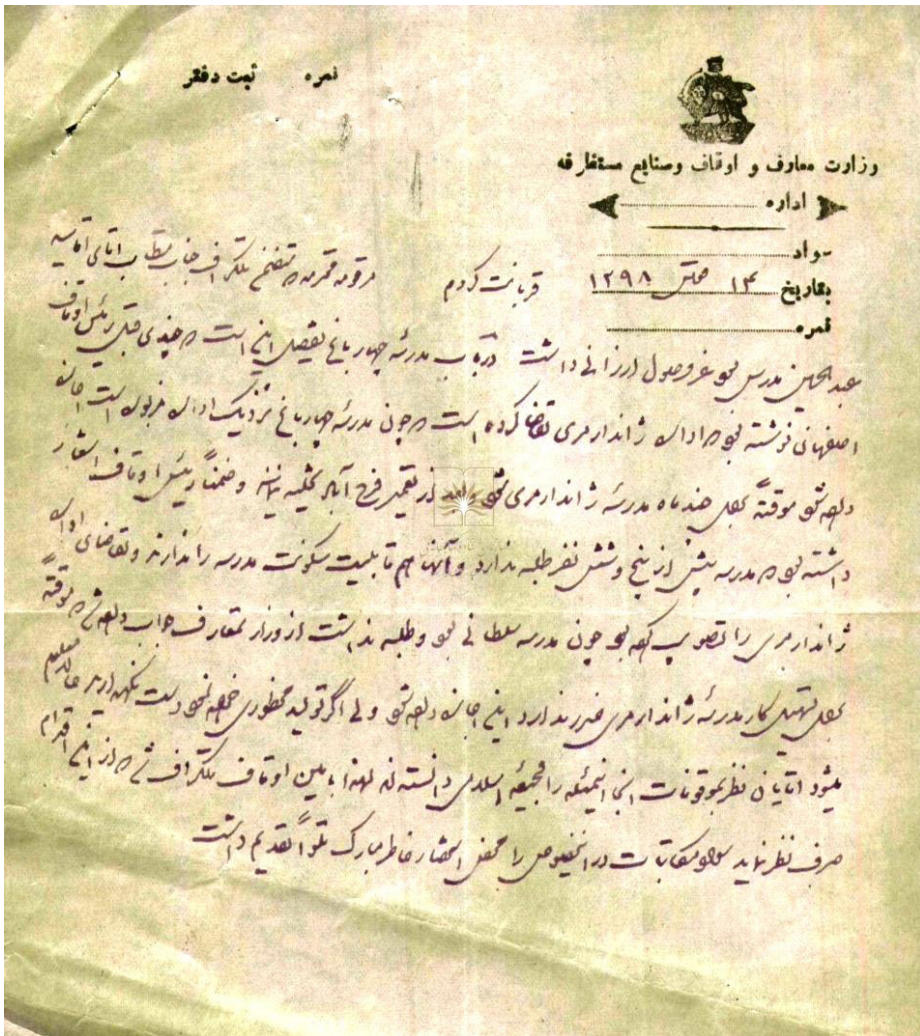 نمره ثبت دفتر
وزارت معارف و اوقاف وصنایع مستظرفه
اداره
سواد
بتاریخ ۱۴ ۱۲۹۸
نمره
قربانت گردم مرقومه محترمه متضمن تلگراف جناب مستطاب آقای آقا سید
عبدالحسین مدرس عز وصول ارزانی داشت درباب مدرسه چهارباغ تفصیل این است چندی قبل رئیس اوقاف
اصفهان نوشته بود اداره ژاندارمری تقاضا کرده است چون مدرسه چهارباغ نزدیک اداره مزبوره است اجازه
داده شود موقتاً برای چند ماه مدرسه ژاندارمری شود بعد از تعمیر فرح آباد تخلیه نمایند و ضمناً رئیس اوقاف اشعار
داشته بود مدرسه بیش از پنج و شش نفر طلبه ندارد و آنها هم قابلیت سکونت مدرسه را ندارند و تقاضای اداره
ژاندارمری را تصویب کرده بود چون مدرسه سلطانی بود و طلبه نداشت از وزارت معارف جواب داده شد موقتاً
برای تشکیل کار مدرسه ژاندارمری ضرر ندارد این اجازه داده شود ولی اگر تولید محظوری خواهد نمود دست نگهدارند حالا معلوم
میشود آقایان نظر بموقوفات این را اسلامی دانسته اند لهذا بامین اوقاف تلگراف شد از این اقدام
صرف نظر نماید سواد مکاتبات در اینخصوص را محض استحضار خاطر مبارک تلواً تقدیم داشت